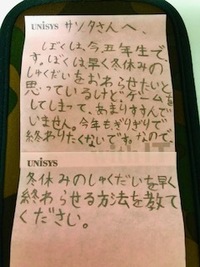 UNiSYS
サンタさんへ
ぼくは今、五年生で
す。ぼくは早く冬休みの
しゅくだいをおわらせたいと
思っているけど、ゲームを
してしまって、あまりすすんで
いません。今年もぎりぎりで
終わりたくないですなので
UNiSYS
冬休みのしゅくだいを早く
終わらせる方法を教て
ください。